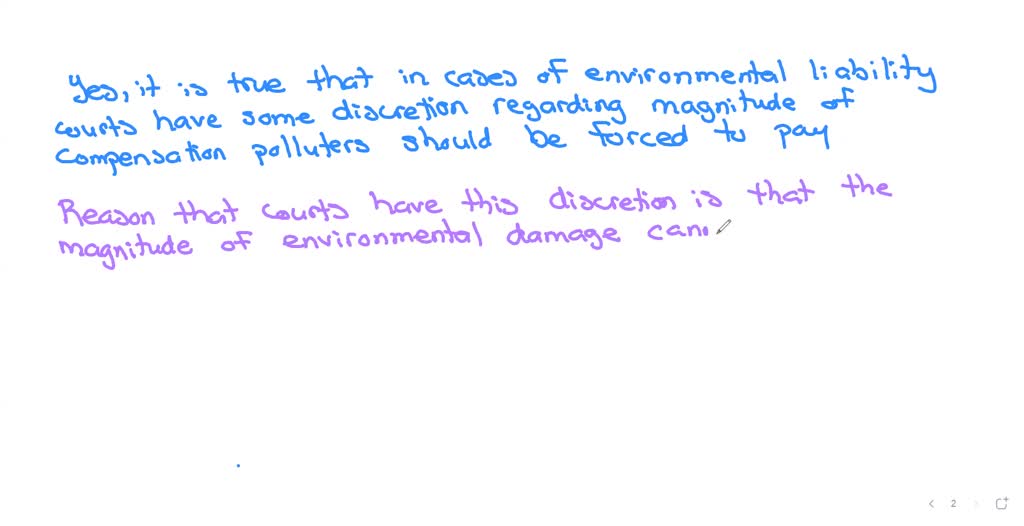 Yes, it is true that in cases of environmental liability
courts have some discretion regarding magnitude of
compensation polluters should be forced to pay
Reason that courts have this discretion is that the
magnitude of environmental damage can
2